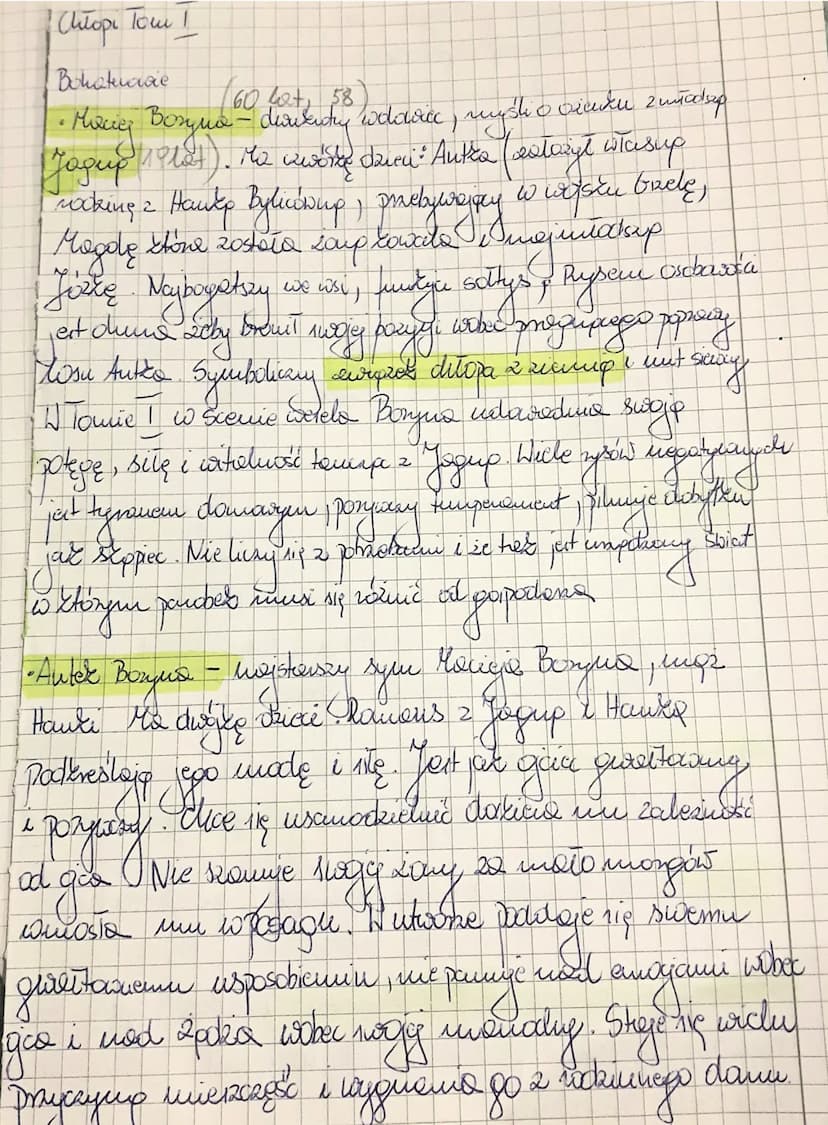 Chłopi Tom I
Bohaterowie
(60 lat, 58)
• Maciej Boryna – dwukrotny wdowiec, myśli o ożenku z młodszą
Jagną (19 lat). Ma czwórkę dzieci: Antka (założył własną
rodzinę z Hanką Bylicówną, przebywający w wojsku Grzelę,
Magdę która została żoną kowala i najmłodszą
Józkę. Najbogatszy we wsi, funkcja sołtys, Rysem osobowości
jest duma żeby bronił swojej pozycji wobec pragnącego poprawy
losu Antka. Symboliczny związek chłopa z ziemią i mit siewcy
W Tomie I w scenie wesela Boryna udowadnia swoją
potęgę, siłę i witalność tańcząc z Jagną. Wiele rysów negatywnych
jest tyranem domowym, porywczy temperament, pilnuje dobytku
jak skąpiec. Nie liczy się z potrzebami i że tak jest urządzony świat
w którym parobek musi się różnić od gospodarza
• Antek Boryna – najstarszy syn Macieja Boryna, mąż
Hanki Ma dwójkę dzieci. Romans z Jagną i Hanką
Podkreślają jego urodę i siłę. Jest jak ojciec gwałtowny
i porywczy. Chce się usamodzielnić doskwiera mu zależność
od ojca Nie szanuje swojej żony za mało morgów
wniosła mu w posagu. W utworze poddaje się swemu
gwałtownemu usposobieniu, nie panuje nad emocjami wobec
ojca i nad żądzą wobec swojej macochy. Staje się wielu
przyczyną nieszczęść i wygnania go z rodzinnego domu.